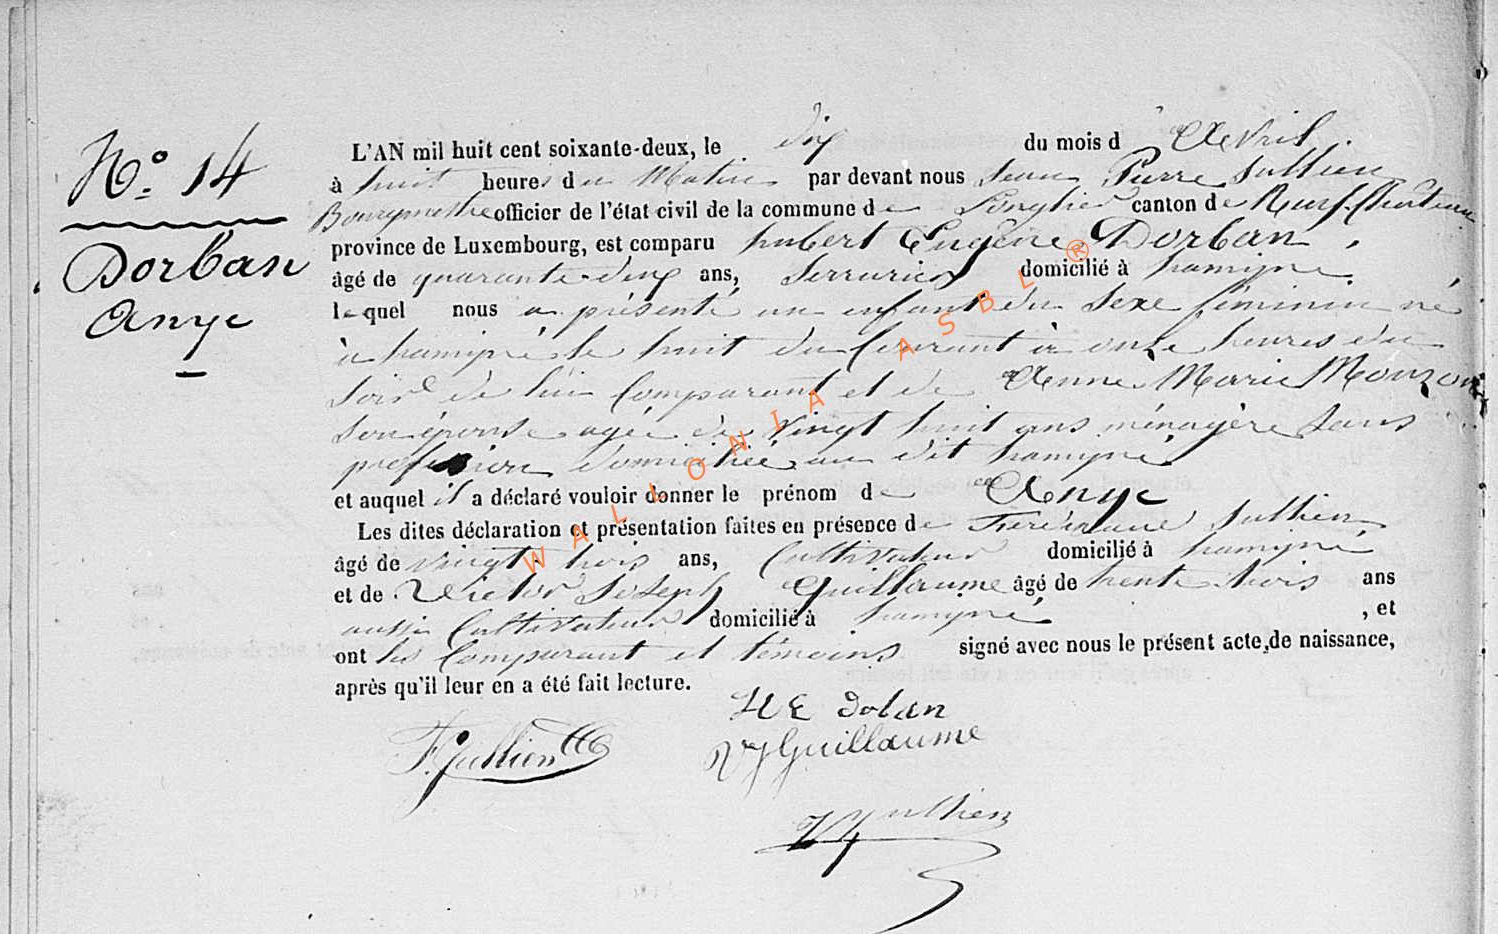 N° 14
Dorban
Anyc
L'AN mil huit cent soixante-deux, le dix du mois d'Avril
à huit heures du Matin par devant nous Jean Pierre Jullien
Bourgmestre officier de l'état civil de la commune de Longlier canton de Neufchâteau
province de Luxembourg, est comparu hubert Eugène Dorban,
âgé de quarante-deux ans, Serrurier domicilié à hamipré
lequel nous a présenté un enfant du Sexe féminin né
à hamipré le huit du Courant à onze heures du
Soir de lui Comparant et de Anne Marie Monzon
Son épouse agée de vingt huit ans ménagère Sans
profession domiciliée au dit hamipré
et auquel il a déclaré vouloir donner le prénom de Anyc
Les dites déclaration et présentation faites en présence de Jullien
âgé de vingt-trois ans, Cultivateur domicilié à hamipré
et de Victor Joseph Guillaume âgé de trente trois ans
aussi Cultivateur domicilié à hamipré, et
ont les Comparant et témoins signé avec nous le présent acte de naissance,
après qu'il leur en a été fait lecture.
H E Doban
F. Jullien
VJ Guillaume
Jullien
WALLONIA ASBL ®